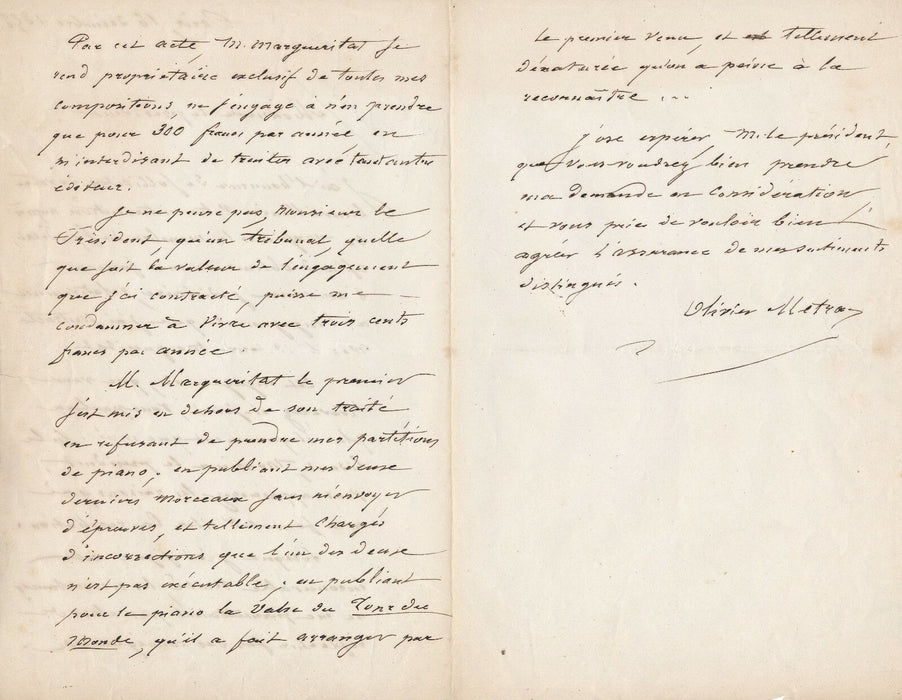 Par cet acte, M. Margueritat se
rend propriétaire exclusif de toutes mes
compositions, ne s'engage à n'en prendre
que pour 300 francs par année en
m'interdisant de traiter avec tout autre
éditeur.
Je ne pense pas, Monsieur le
Président, qu'un tribunal, quelle
que soit la valeur de l'engagement
que j'ai contracté, puisse me
condamner à vivre avec trois cents
francs par année.
M. Margueritat le premier
s'est mis en dehors de son traité
en refusant de prendre mes partitions
de piano; en publiant mes deux
derniers morceaux sans m'envoyer
d'épreuves, et tellement chargés
d'incorrections que l'un des deux
n'est pas exécutable; en publiant
pour le piano la Valse du Tour du
Monde, qu'il a fait arranger par
le premier venu, et tellement
dénaturée qu'on a peine à la
reconnaître ...
J'ose espérer, M. le président,
que vous voudrez bien prendre
ma demande en considération
et vous prie de vouloir bien
agréer l'assurance de mes sentiments
distingués.
Olivier Metra